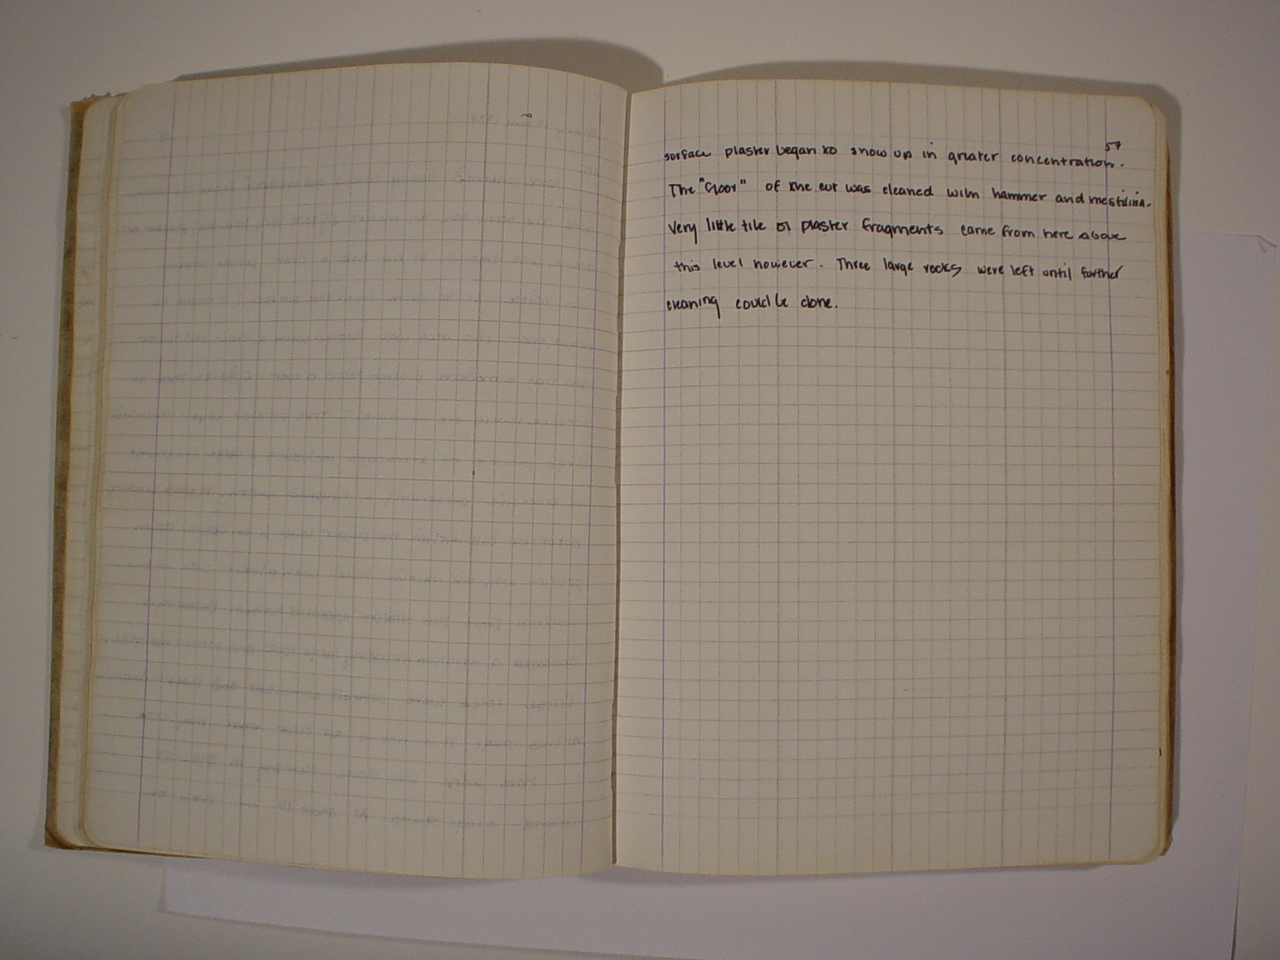 57
surface plaster began to show up in greater concentration.
The "floor" of the cut was cleaned with hammer and mestilina.
Very little tile or plaster fragments came from here above
this level however. Three large rocks were left until further
cleaning could be done.